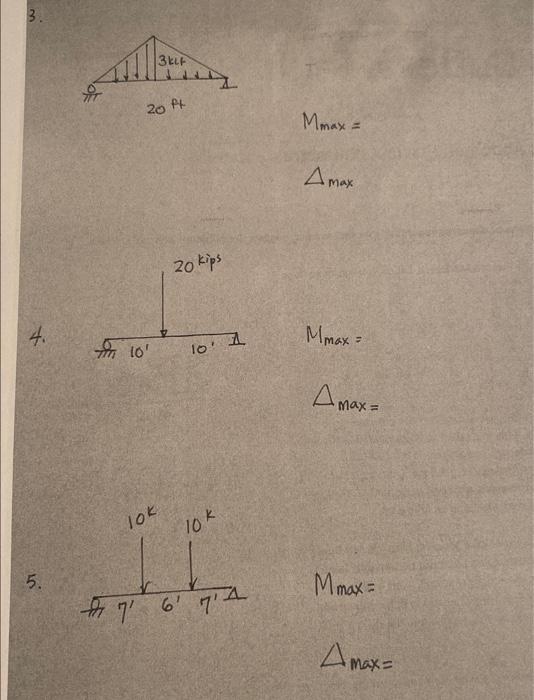 3.
3 klf
20 ft
Mmax =
Δmax
20 kips
4.
10' 10'
Mmax =
Δmax =
10k 10k
5.
7' 6' 7'
Mmax =
Δmax =